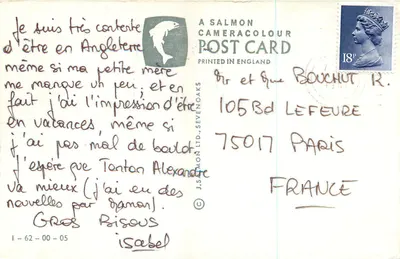 Je suis très contente
d'être en Angleterre
même si ma petite mère
me manque un peu, et en
fait j'ai l'impression d'être
en vacances, même si
j'ai pas mal de boulot.
J'espère que Tonton Alexandre
va mieux (j'ai eu des
nouvelles par Mamon).
GROS BISOUS
isabel
1-62-00-05
A SALMON
CAMERACOLOUR
POST CARD
PRINTED IN ENGLAND
© J. SALMON LTD., SEVENOAKS
18P
Mr et Mme BOUCHUT R.
105 Bd LEFEURE
75017 PARIS
FRANCE